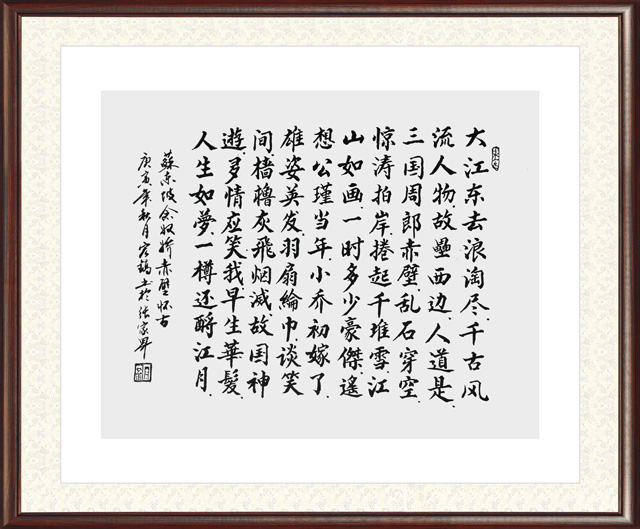 大江东去浪淘尽.千古风
流人物.故壘西边.人道是.
三国周郎赤壁.乱石穿空.
惊涛拍岸.捲起千堆雪.江
山如画.一时多少豪傑.遙
想公瑾当年.小乔初嫁了.
雄姿英发.羽扇綸巾.谈笑
间.樯櫓灰飛烟滅.故国神
遊.多情应笑我.早生華髮.
人生如夢.一樽还酹江月.
蘇东坡念奴娇赤壁怀古
庚寅年秋月书於张家界